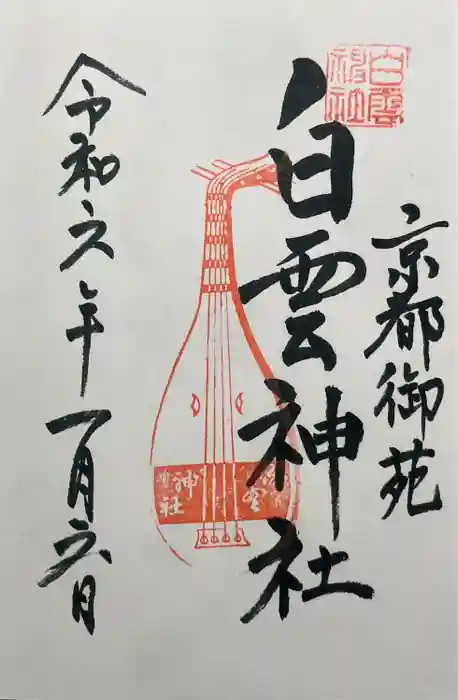 京都御苑
白雲神社
白雲神社
令和六年一月六日
神社